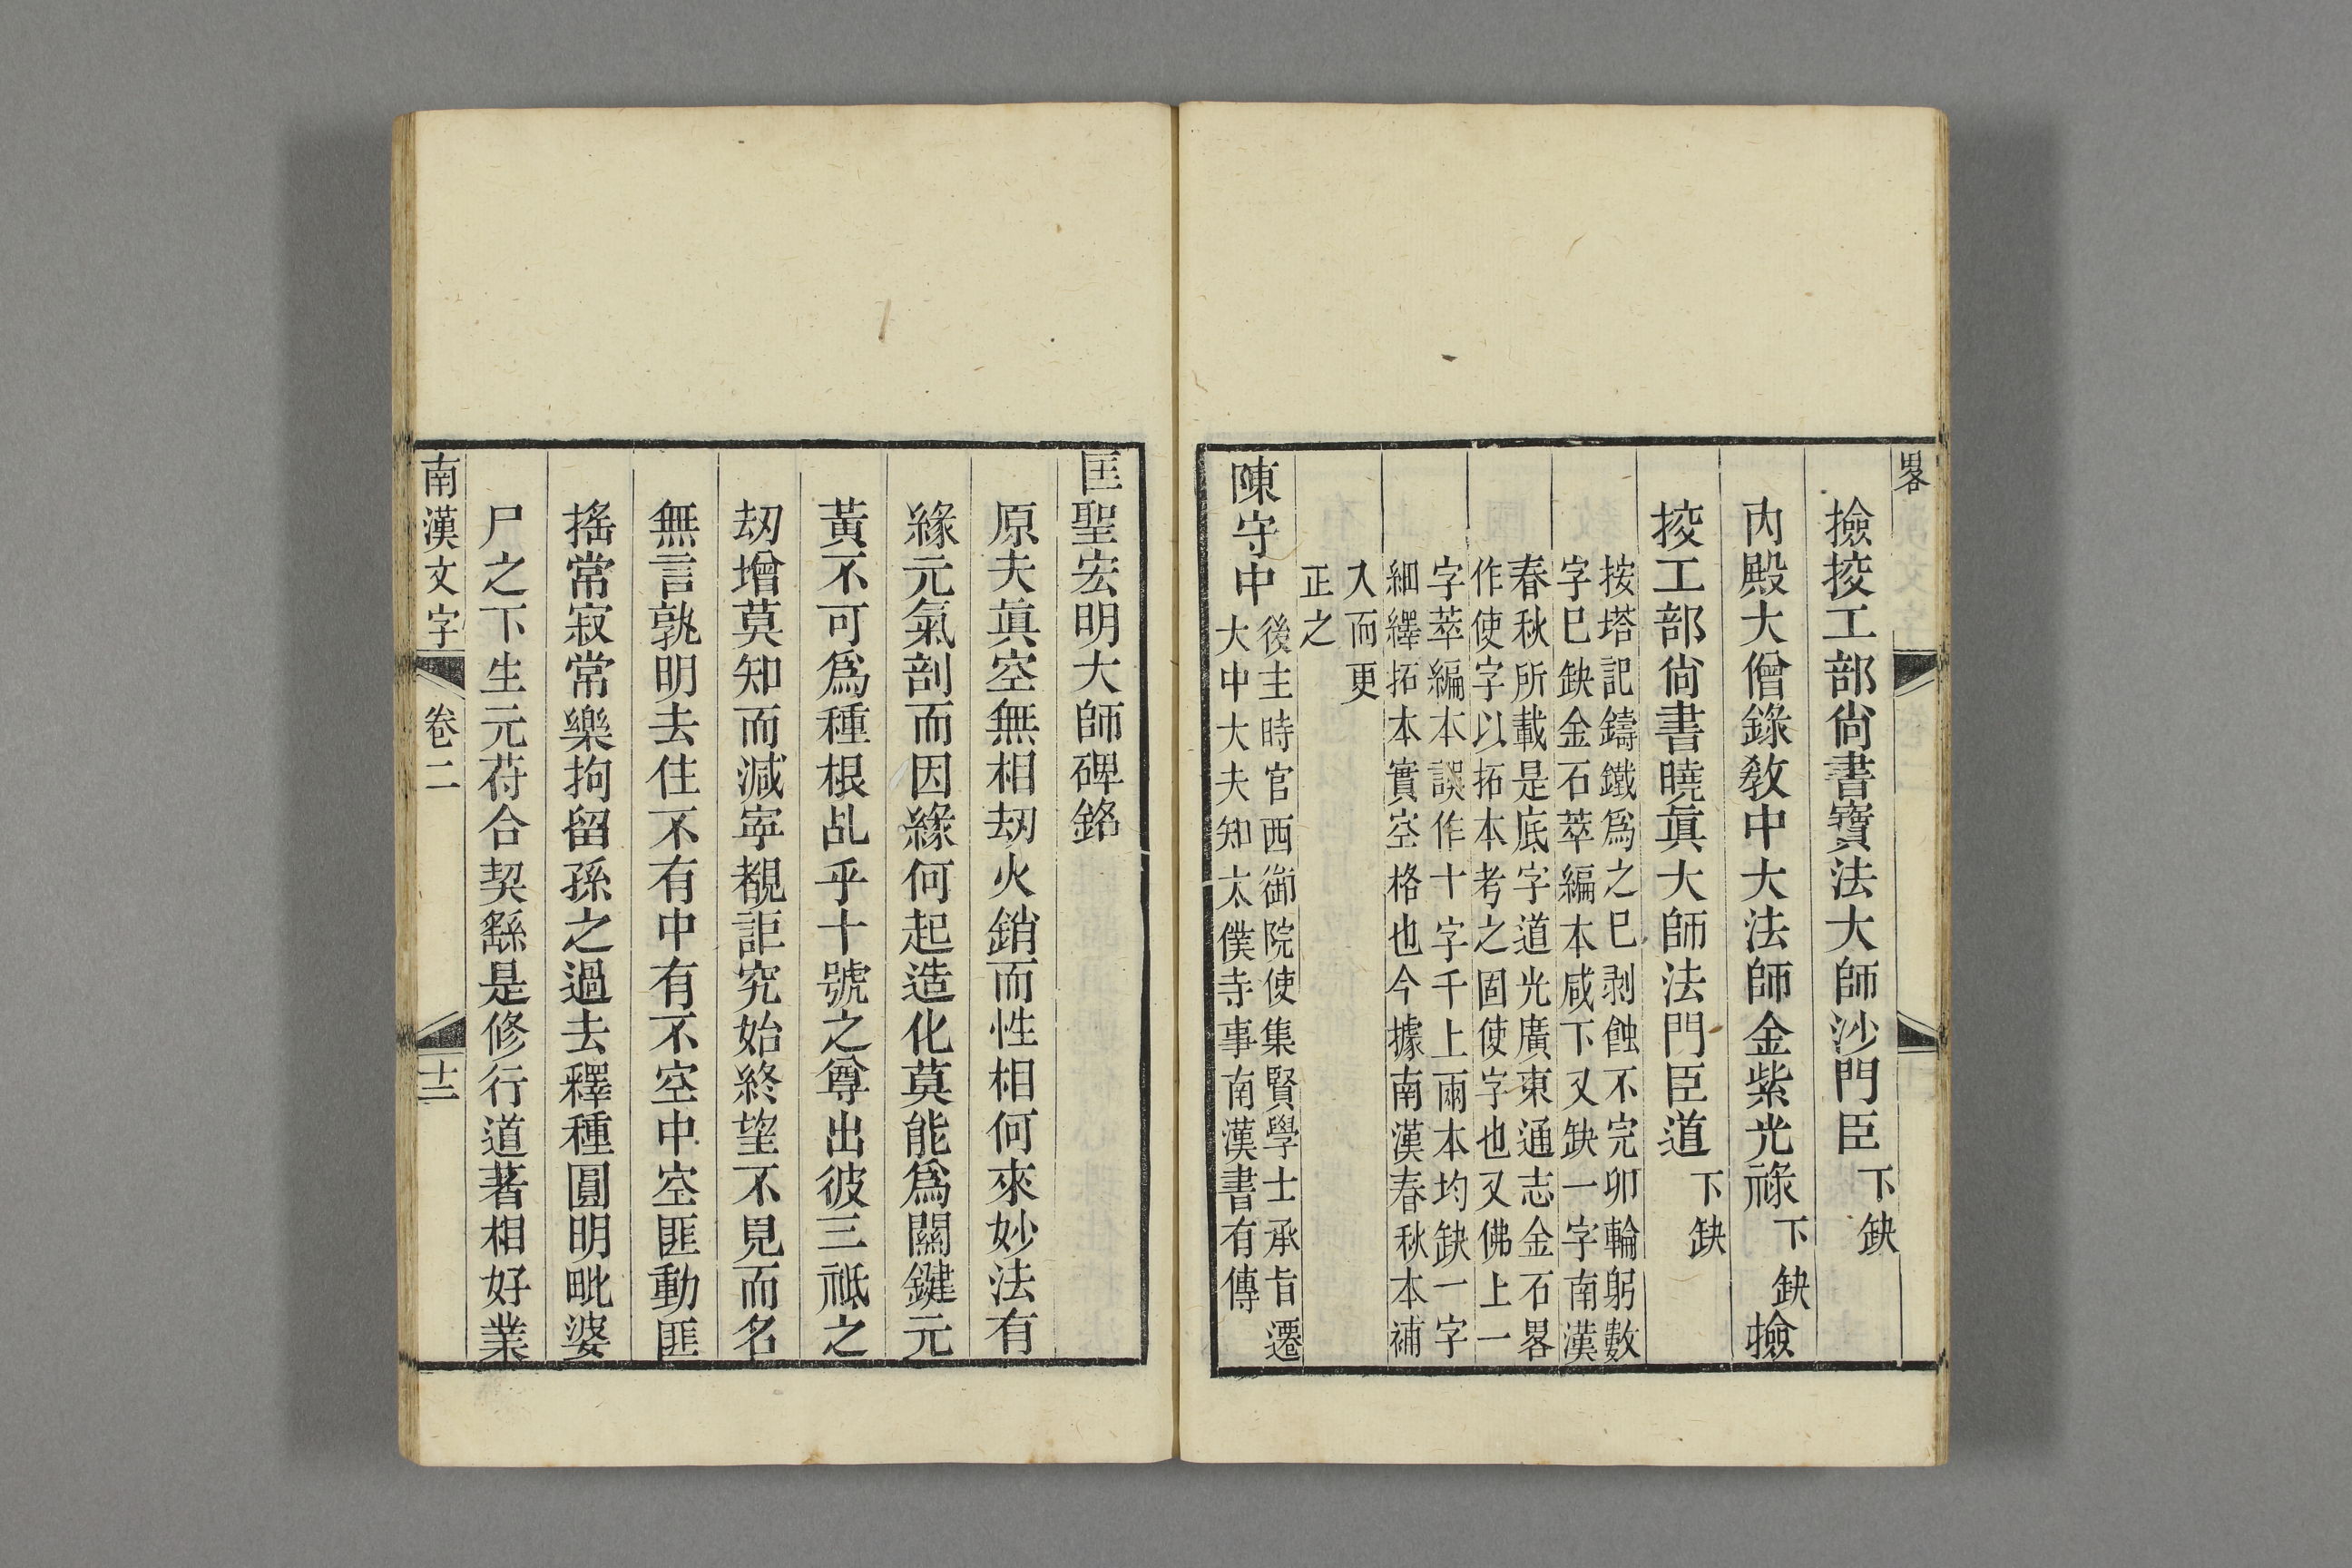 畧
撿挍工部尙書寶法大師沙門臣下缺
內殿大僧錄敎中大法師金紫光祿下缺撿
挍工部尙書曉眞大師法門臣道下缺
按塔記鑄鐵爲之巳剥蝕不完卯輪躬數
字巳缺金石萃編本咸下又缺一字南漢
春秋所載是底字道光廣東通志金石畧
作使字以拓本考之固使字也又佛上一
字萃編本誤作十字千上兩本均缺一字
細繹拓本實空格也今據南漢春秋本補
入而更
正之
陳守中後主時官西御院使集賢學士承㫖遷
大中大夫知太僕寺事南漢書有傳
匡聖宏明大師碑銘
原夫眞空無相刼火銷而性相何來妙法有
緣元氣剖而因緣何起造化莫能爲關鍵元
黃不可爲種根乩乎十號之尊出彼三祇之
刼增莫知而減寜覩詎究始終望不見而名
無言孰明去住不有中有不空中空匪動匪
搖常寂常樂拘留孫之過去釋種圓明毗婆
尸之下生元苻合契繇是修行道著相好業
南漢文字 卷二 十二